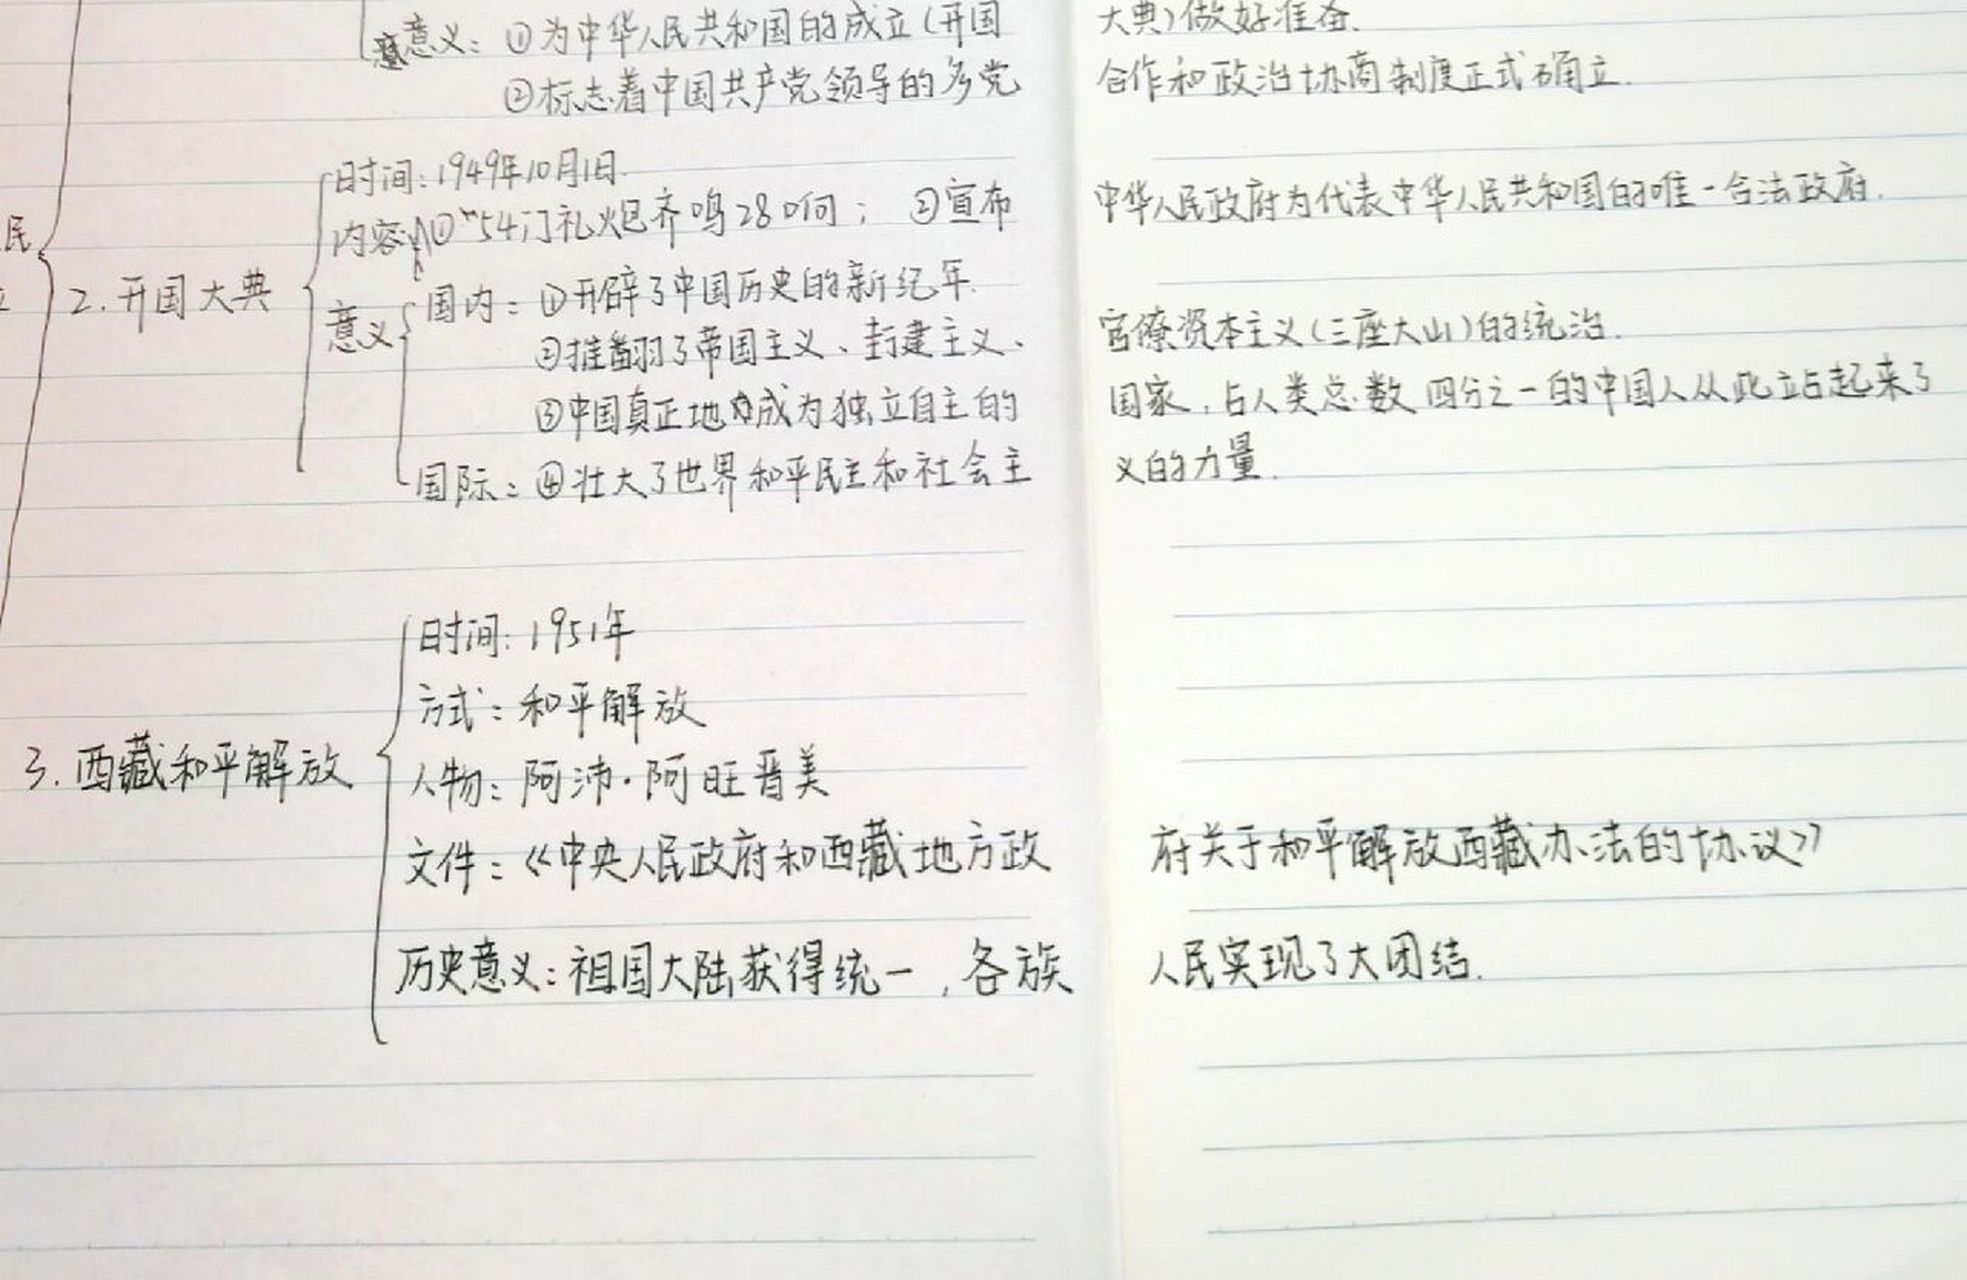 意义：①为中华人民共和国的成立（开国大典）做好准备.
②标志着中国共产党领导的多党合作和政治协商制度正式确立.
时间：1949年10月1日.
内容：①54门礼炮齐鸣28响； ②宣布中华人民政府为代表中华人民共和国的唯一合法政府.
民
2. 开国大典
意义
国内：①开辟了中国历史的新纪年.
②推翻了帝国主义、封建主义、官僚资本主义（三座大山）的统治.
③中国真正地成为独立自主的国家，占人类总数四分之一的中国人从此立占起来了
国际：④壮大了世界和平民主和社会主义的力量.
时间：1951年
方式：和平解放
3. 西藏和平解放
人物：阿沛·阿旺晋美
文件：《中央人民政府和西藏地方政府关于和平解放西藏办法的协议》
历史意义：祖国大陆获得统一，各族人民实现了大团结.